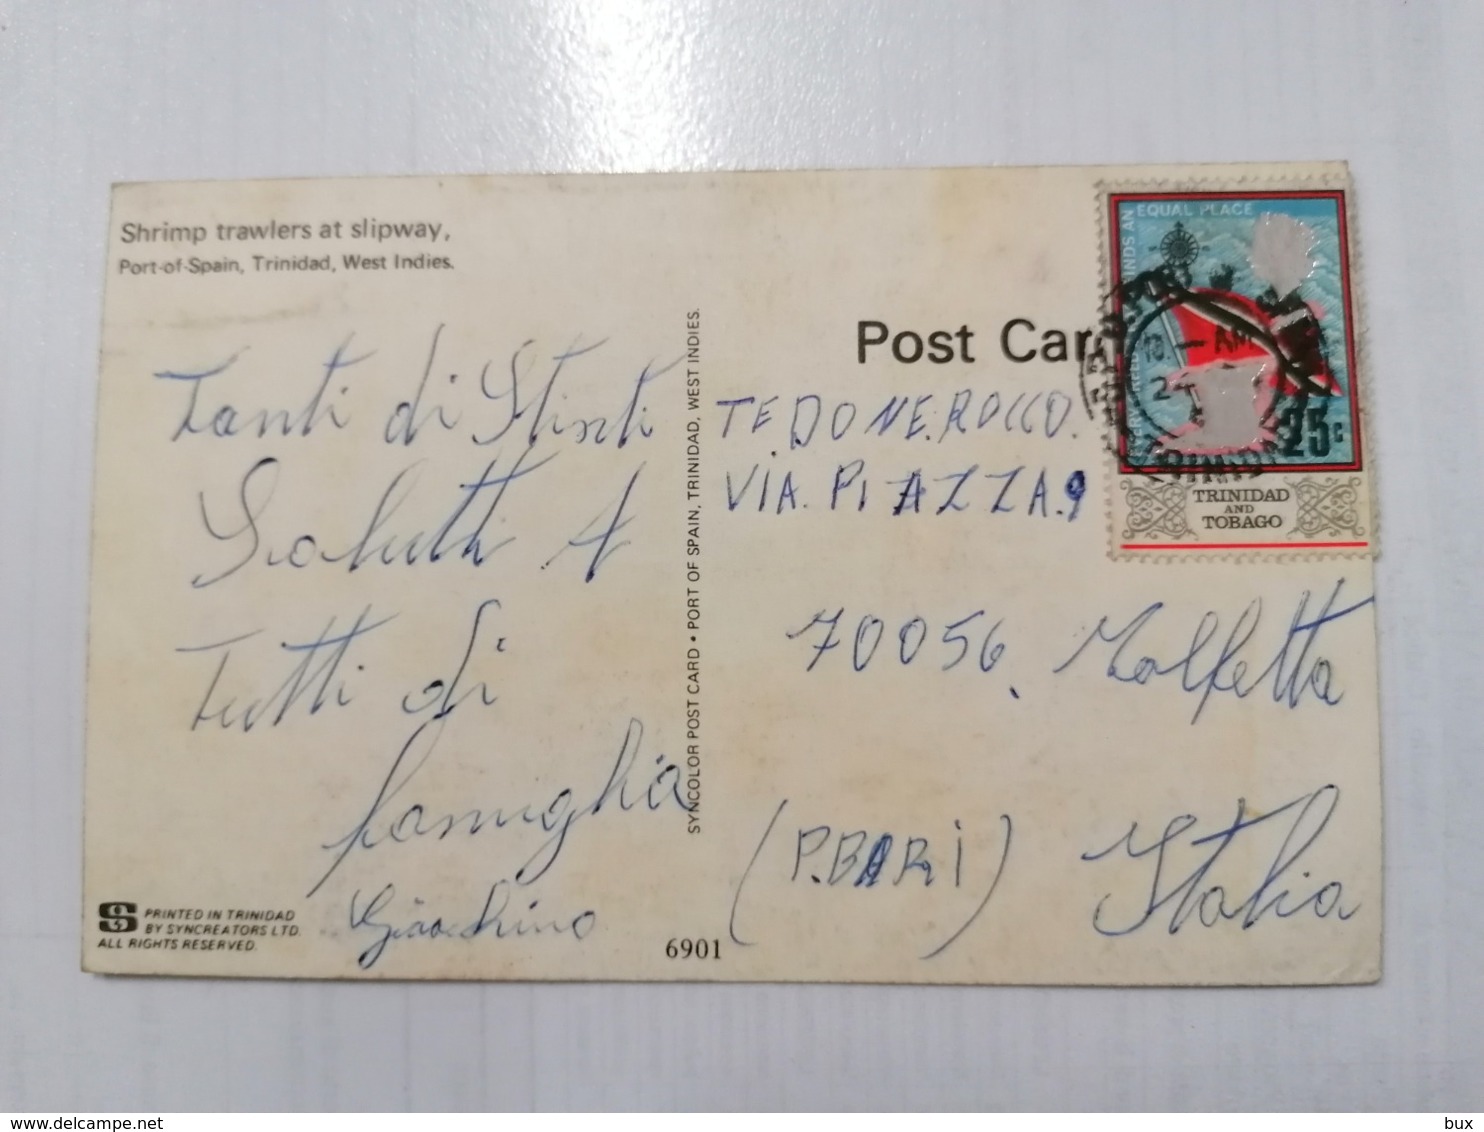 Shrimp trawlers at slipway,
Port-of-Spain, Trinidad, West Indies.
Tanti di Stinti
Saluti A
Tutti di
famiglia
Gioachino
PRINTED IN TRINIDAD
BY SYNCREATORS LTD.
ALL RIGHTS RESERVED.
SYNCOLOR POST CARD • PORT OF SPAIN, TRINIDAD, WEST INDIES.
6901
Post Card
TEDONE.ROCCO.
VIA. PIAZZA.9
70056. Molfetta
(P.BARI) Italia
EQUAL PLACE
AM
TRINIDAD
25c
TRINIDAD
AND
TOBAGO
delcampe.net
bux